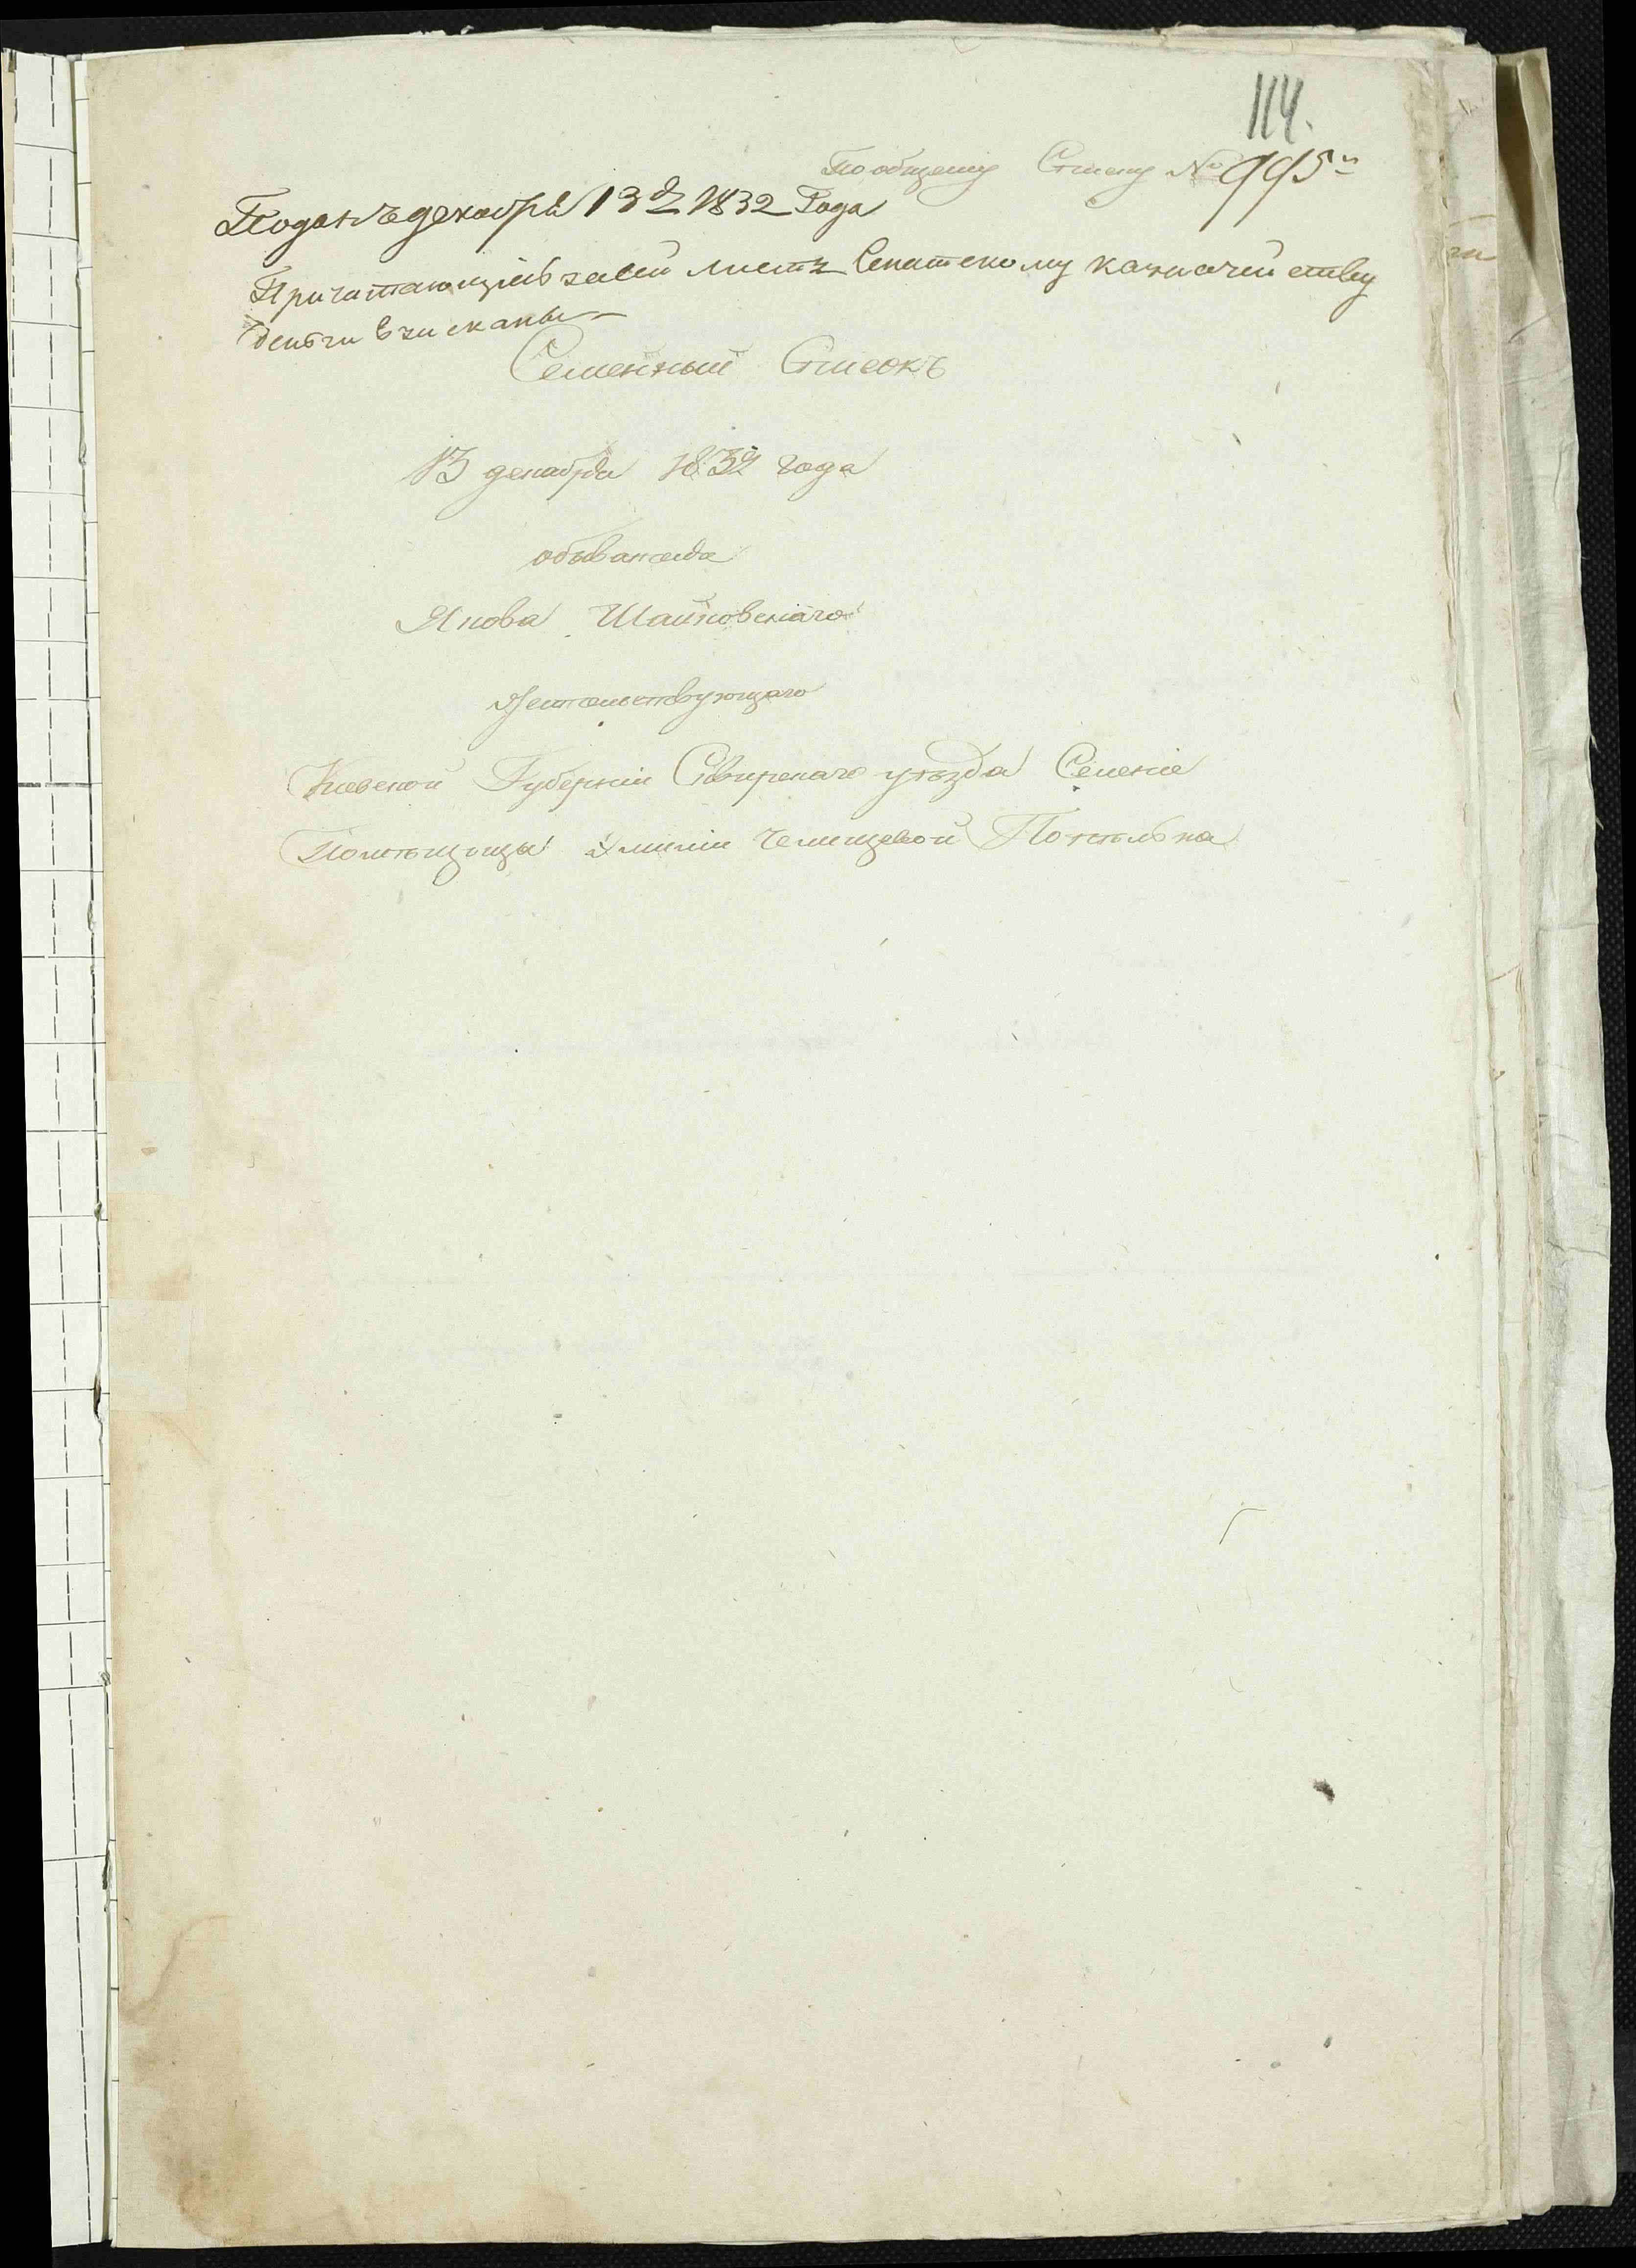 114.
По общему Списку № 995й
Поданъ декабря 13 д 1832 Года
Причитающіясъ за сей листъ Сенатскому казначейству
деньги взисканы
Семейный Списокъ
13 декабря 1832 года
обывателя
Якова Шайковскаго
Жительствующаго
Киевской Губерніи Сквирскаго уѣзда Селеніе
Помѣщицы Эмиліи Челищевой